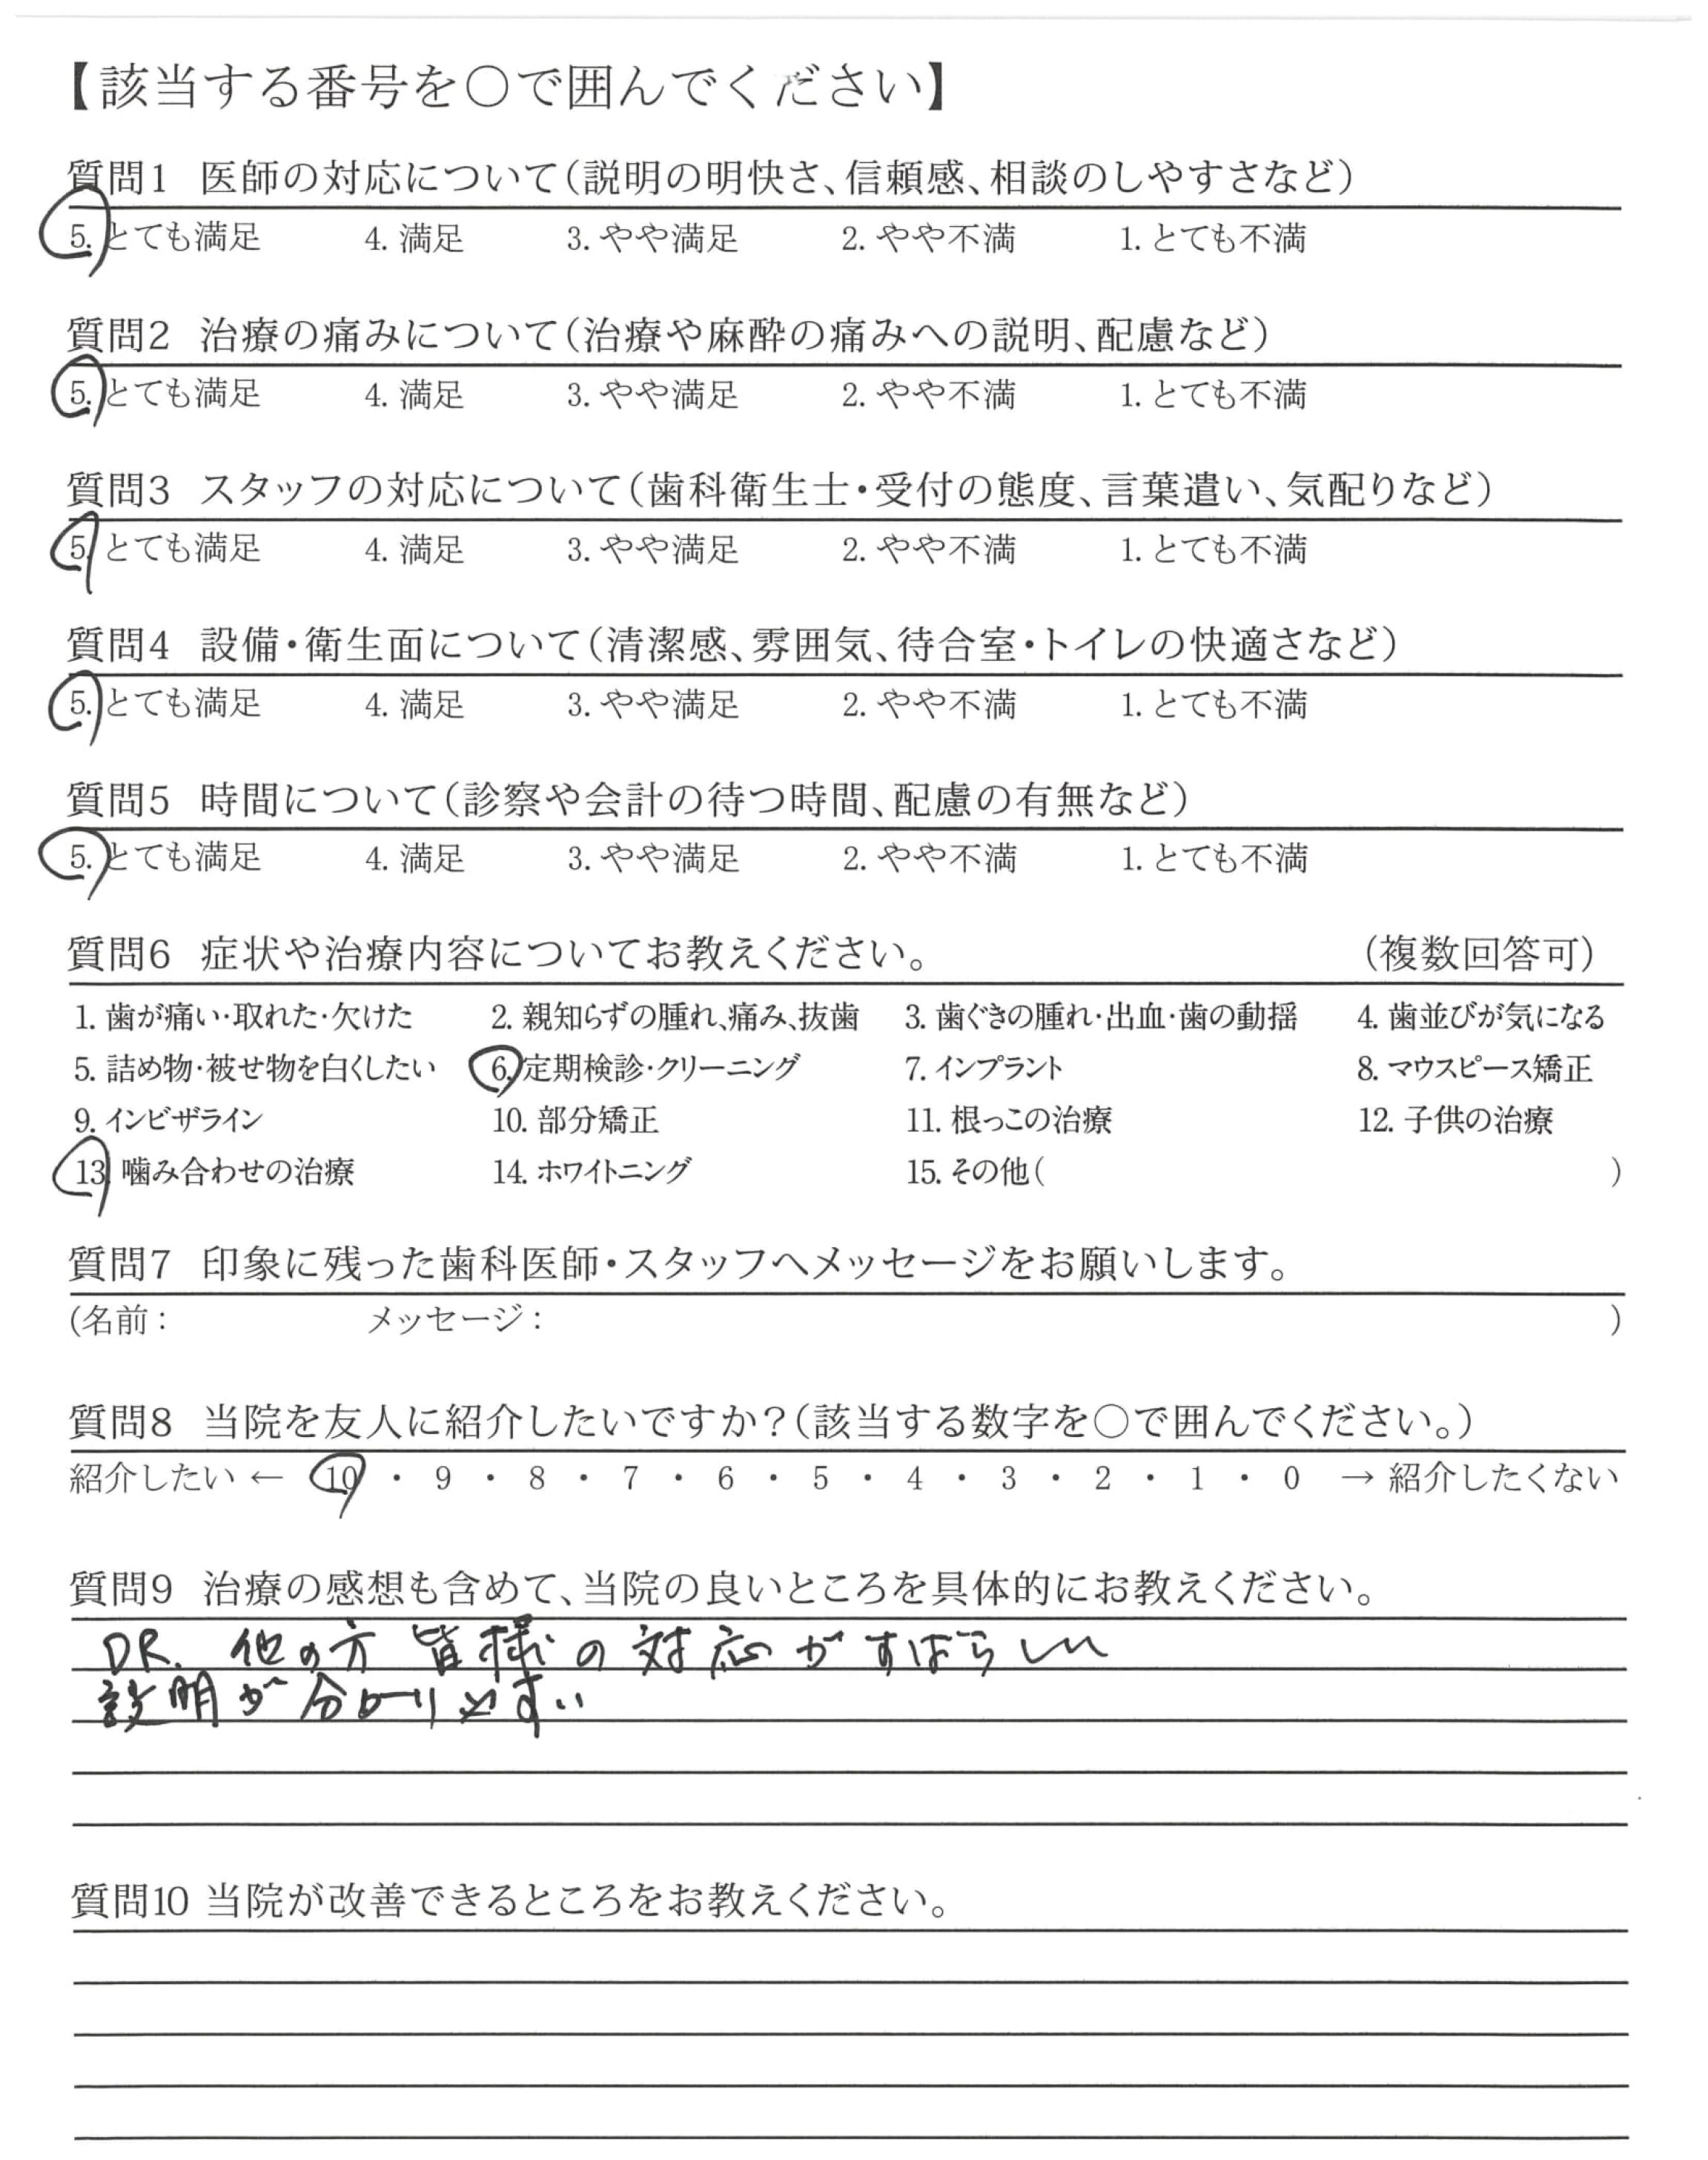 【該当する番号を○で囲んでください】
質問1 医師の対応について(説明の明快さ、信頼感、相談のしやすさなど)
5. とても満足 4. 満足 3. やや満足 2. やや不満 1. とても不満
質問2 治療の痛みについて(治療や麻酔の痛みへの説明、配慮など)
5. とても満足 4. 満足 3. やや満足 2. やや不満 1. とても不満
質問3 スタッフの対応について(歯科衛生士・受付の態度、言葉遣い、気配りなど)
5. とても満足 4. 満足 3. やや満足 2. やや不満 1. とても不満
質問4 設備・衛生面について(清潔感、雰囲気、待合室・トイレの快適さなど)
5. とても満足 4. 満足 3. やや満足 2. やや不満 1. とても不満
質問5 時間について(診察や会計の待つ時間、配慮の有無など)
5. とても満足 4. 満足 3. やや満足 2. やや不満 1. とても不満
質問6 症状や治療内容についてお教えください。 (複数回答可)
1. 歯が痛い・取れた・欠けた 2. 親知らずの腫れ、痛み、抜歯 3. 歯ぐきの腫れ・出血・歯の動揺 4. 歯並びが気になる
5. 詰め物・被せ物を白くしたい 6. 定期検診・クリーニング 7. インプラント 8. マウスピース矯正
9. インビザライン 10. 部分矯正 11. 根っこの治療 12. 子供の治療
13. 噛み合わせの治療 14. ホワイトニング 15. その他( )
質問7 印象に残った歯科医師・スタッフへメッセージをお願いします。
(名前: メッセージ: )
質問8 当院を友人に紹介したいですか?(該当する数字を○で囲んでください。)
紹介したい ← 10 ・ 9 ・ 8 ・ 7 ・ 6 ・ 5 ・ 4 ・ 3 ・ 2 ・ 1 ・ 0 → 紹介したくない
質問9 治療の感想も含めて、当院の良いところを具体的にお教えください。
DR. 他の方 皆様の対応がすばらしい
説明が分かりやすい
質問10 当院が改善できるところをお教えください。